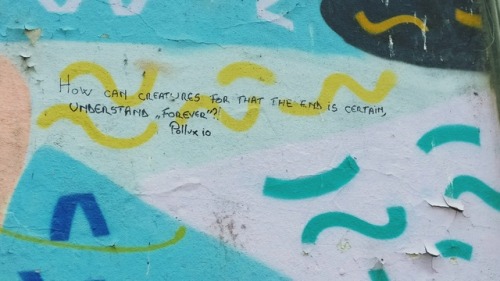 HOW CAN CREATURES FOR THAT THE END IS CERTAIN,
UNDERSTAND „FOREVER"?!
Pollux io